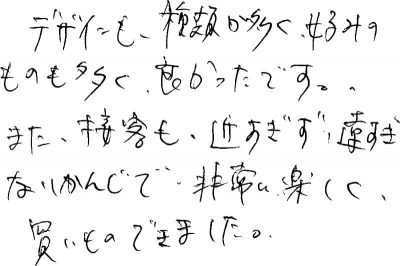 デザインも、種類が多く、好みの
ものも多く、良かったです。
また、接客も、近すぎず、遠すぎ
ないかんじで、非常に楽しく、
買いものできました。